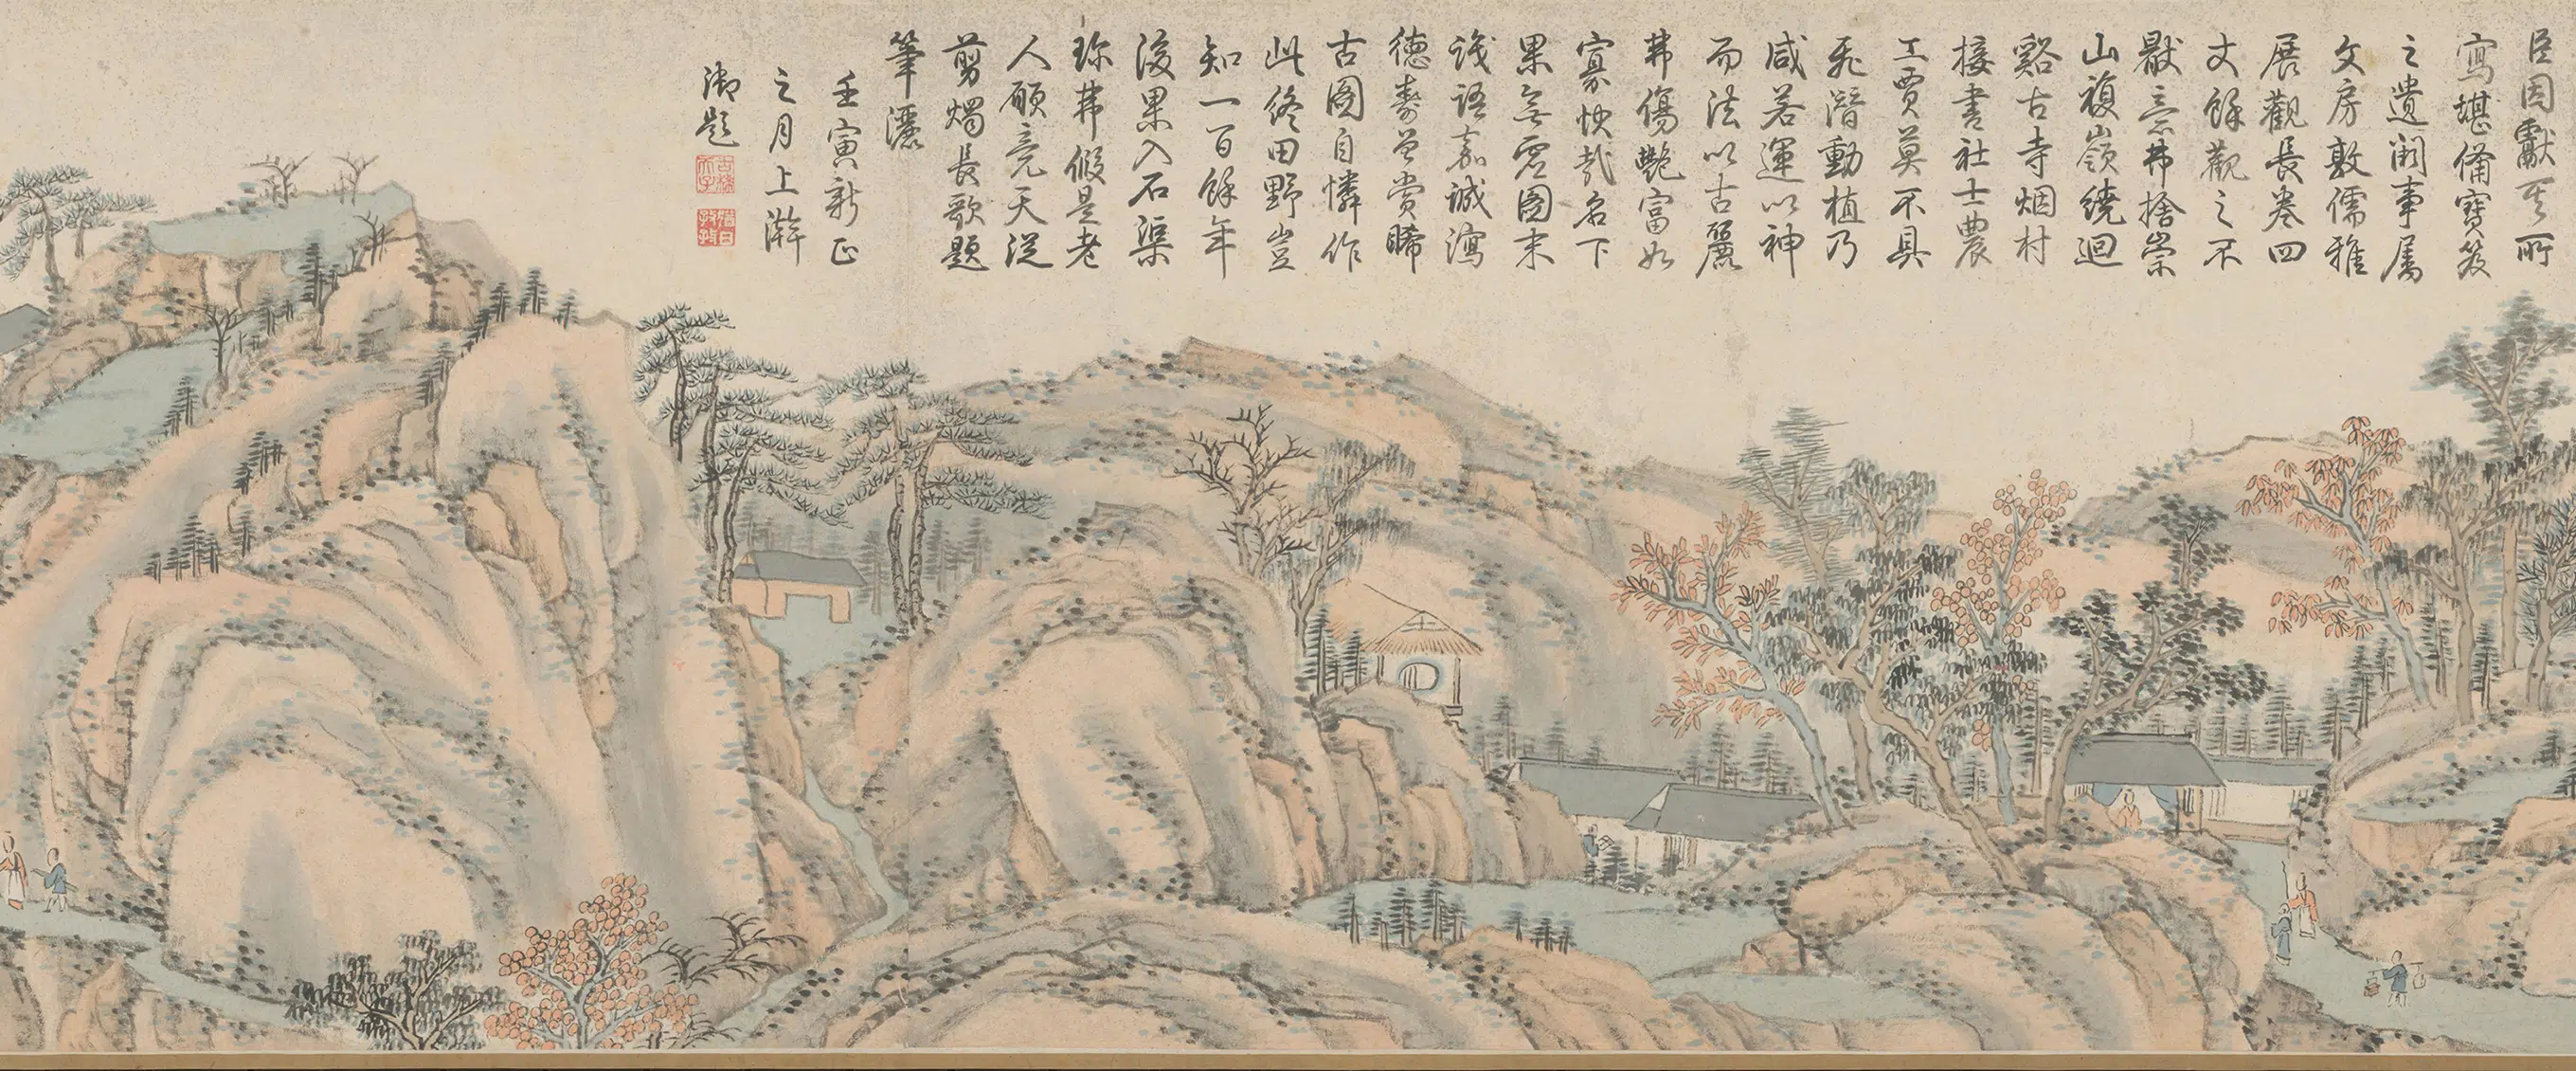 臣因獻其所
寫堪備寶笈
之遺闕事屬
文房敦儒雅
展觀長卷四
丈餘觀之不
猒意弗捨崇
山複嶺繞迴
谿古寺烟村
接書社士農
工賈莫不具
飛潛動植乃
咸若運以神
而法以古麗
弗傷艷富如
寡快哉名下
果無虛圖末
識語嘉誠瀉
德壽曾賞睎
古圖自憐作
此終田野豈
知一百餘年
後果入石渠
珎弗假是老
人願竟天從
剪燭長歌題
筆灑
壬寅新正
之月上澣
御題
古稀天子
猶日孜孜